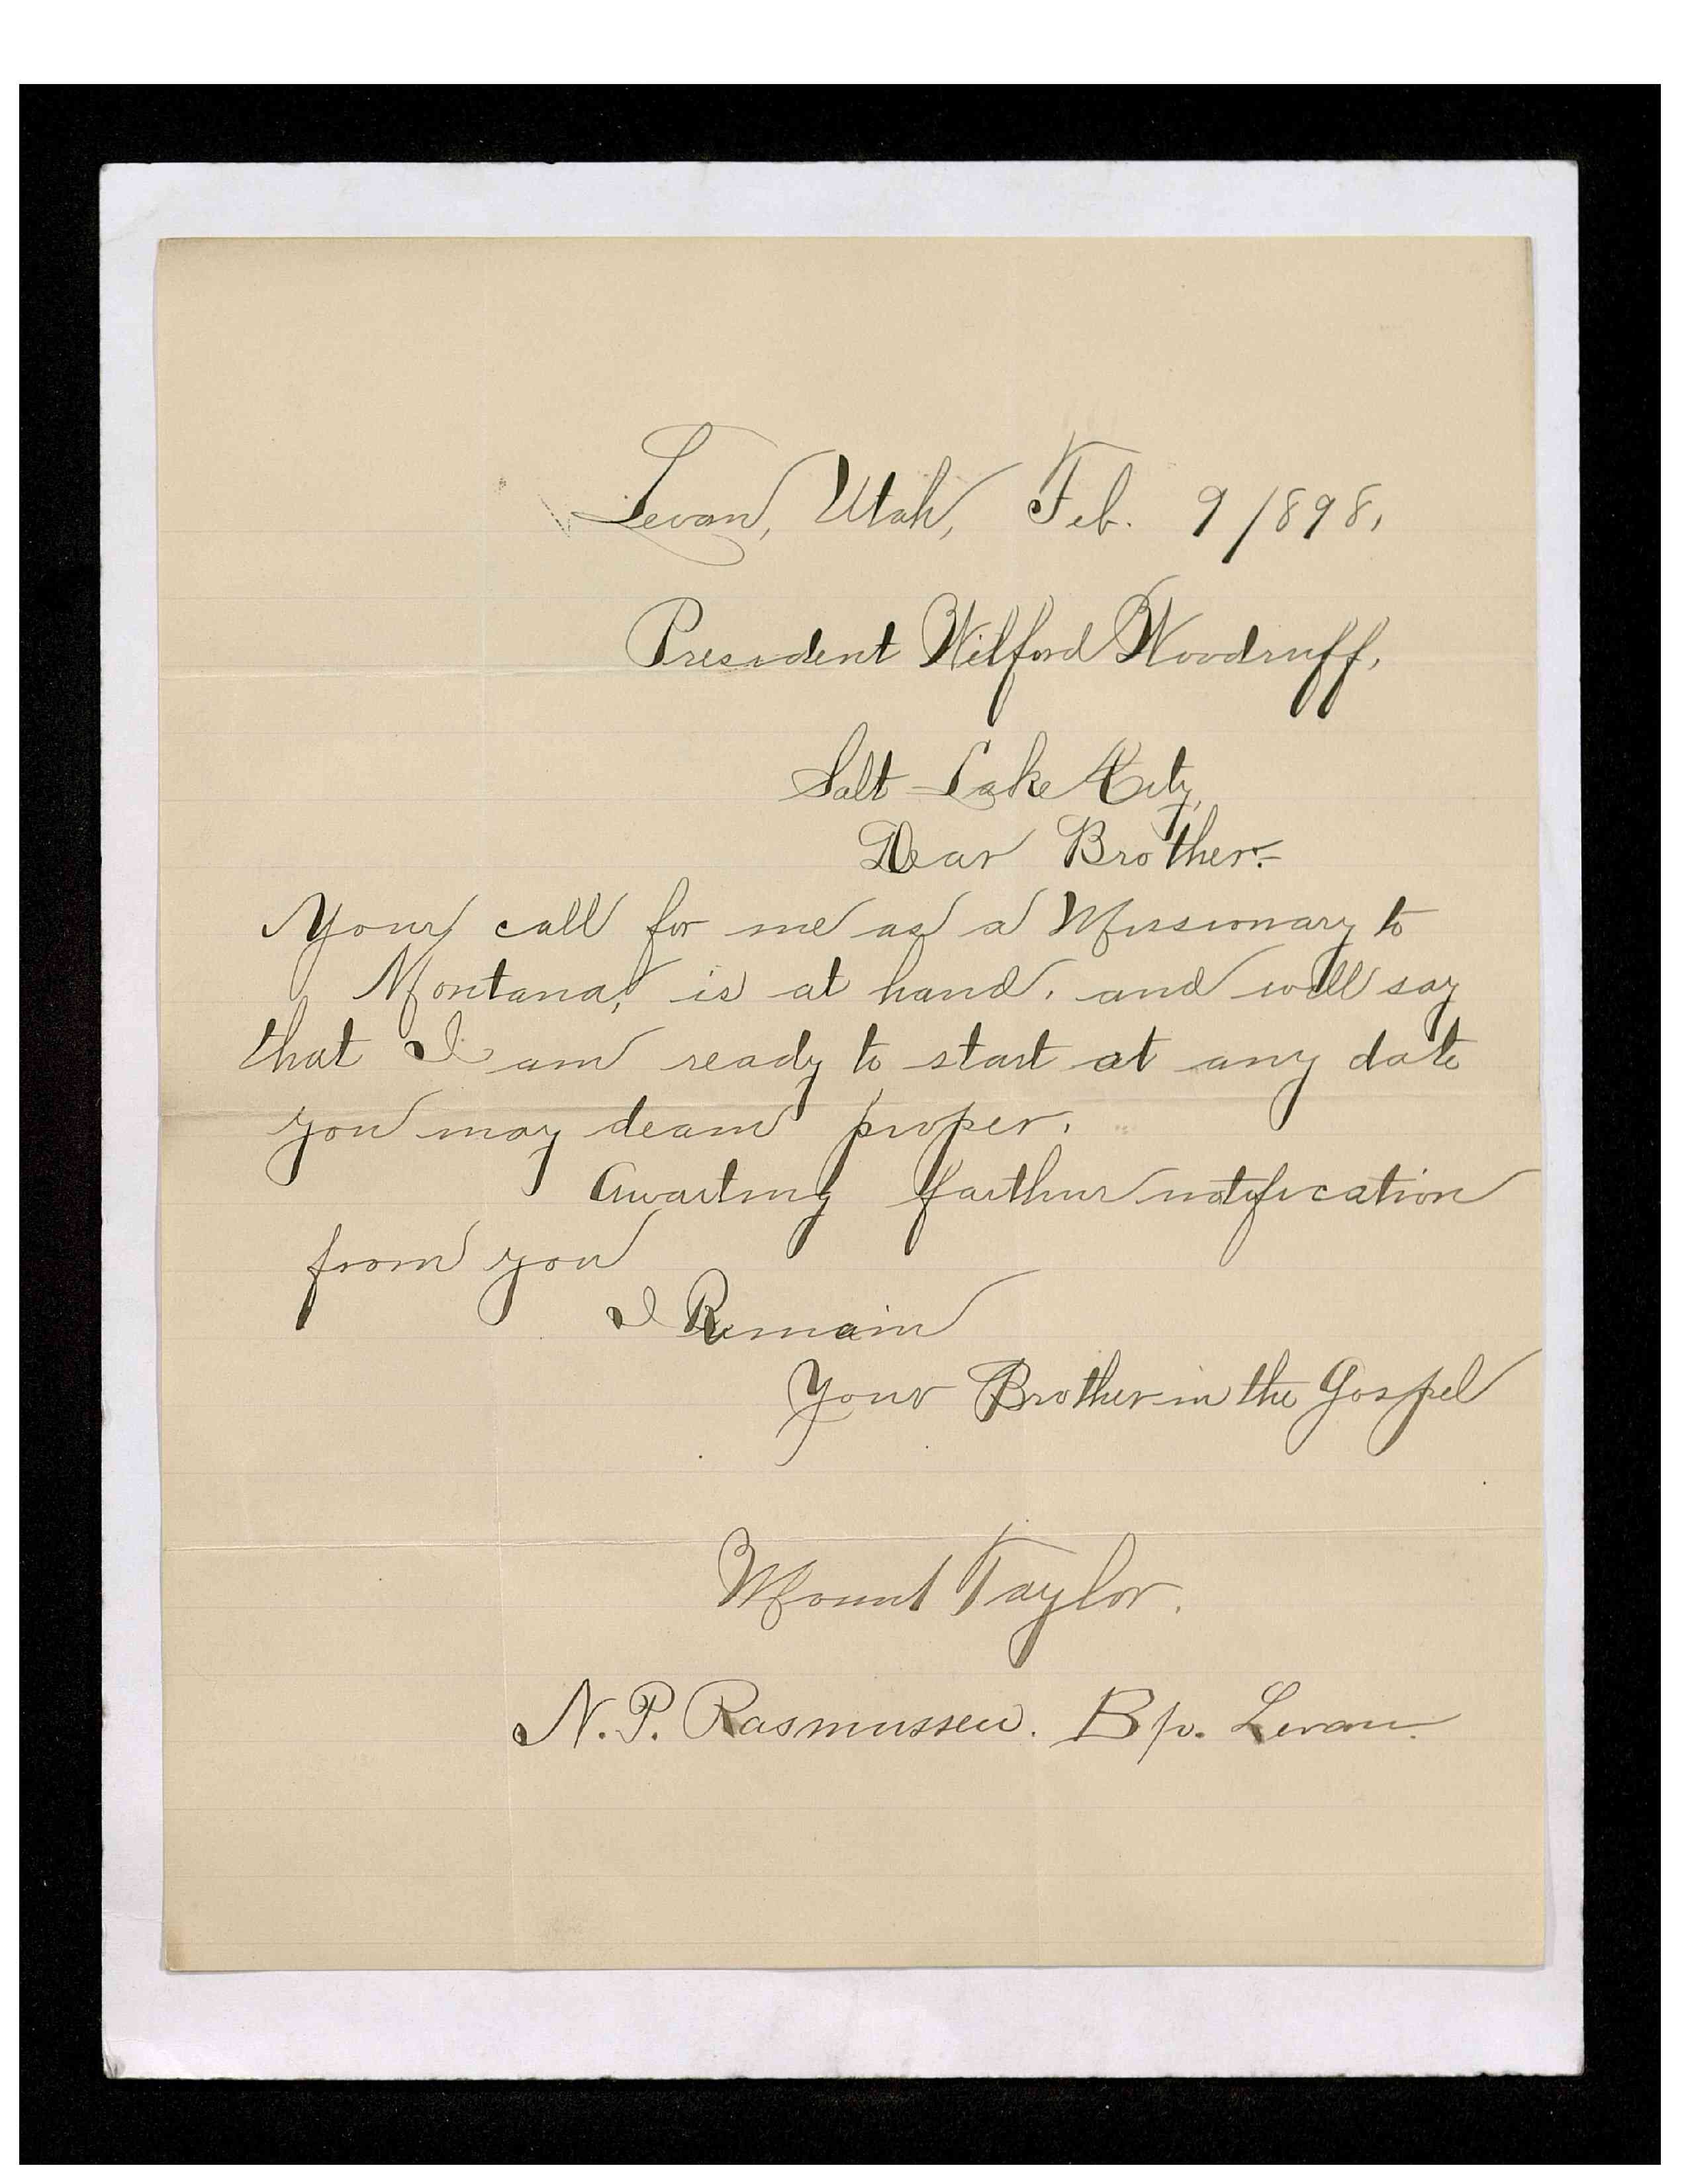 Levan, Utah, Feb. 9 1898,
President Wilford Woodruff,
Salt Lake City,
Dear Brother:-
Your call for me as a Missionary to
Montana, is at hand, and will say
that I am ready to start at any date
you may deam proper.
Awaiting farther notification
from you
I Remain
Your Brother in the Gospel
Mount Taylor.
N. P. Rasmussen. Bp. Levan.